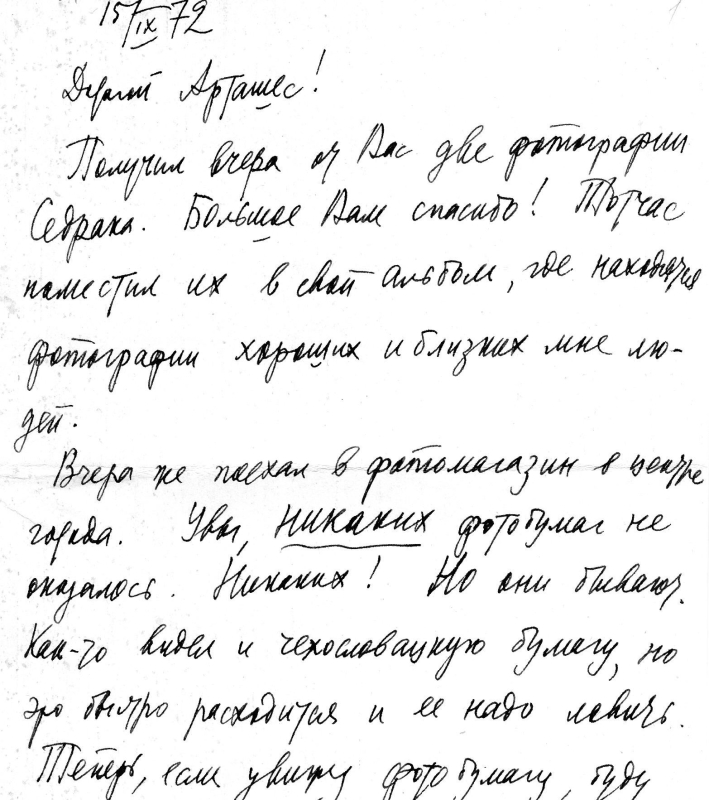 15/IX 72
1
Дорогой Арташес!
Получил вчера от Вас две фотографии
Седрака. Большое Вам спасибо! Тотчас
поместил их в свой альбом, где находятся
фотографии хороших и близких мне лю-
дей.
Вчера же поехал в фотомагазин в центре
города. Увы, никаких фотобумаг не
оказалось. Никаких! Но они бывают.
Как-то видел и чехословацкую бумагу, но
это быстро расходится и ее надо ловить.
Теперь, если увижу фотобумагу, буду